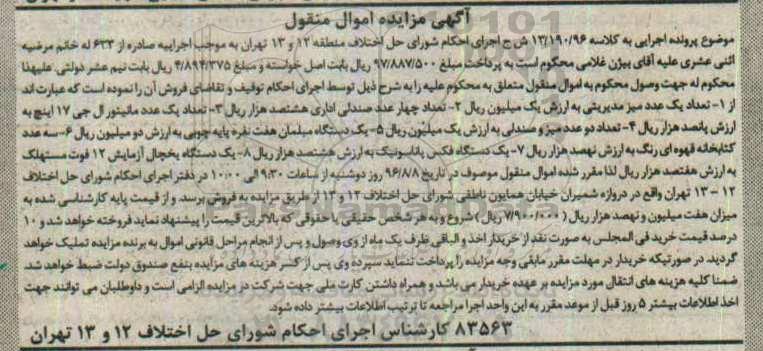 آگهی مزایده اموال منقول
موضوع پرونده اجرایی به کلاسه ۱۲/۱۹۰/۹۶ ش ح اجرای احکام شورای حل اختلاف منطقه ۱۲ و ۱۳ تهران به موجب اجراییه صادره از ۶۳۳ له خانم مرضیه
اثنی عشری علیه آقای بیژن غلامی محکوم است به پرداخت مبلغ ۹۷/۸۸۷/۵۰۰ ریال بابت اصل خواسته و مبلغ ۴/۸۹۴/۳۷۵ ریال بابت نیم عشر دولتی. علیهذا
محکوم له جهت وصول محکوم به اموال منقول متعلق به محکوم علیه را به شرح ذیل توسط اجرای احکام توقیف و تقاضای فروش آن را نموده است که عبارت اند
از ۱- تعداد یک عدد میز مدیریتی به ارزش یک میلیون ریال ۲- تعداد چهار عدد صندلی اداری هشتصد هزار ریال ۳- تعداد یک عدد مانیتور ال جی ۱۷ اینچ به
ارزش پانصد هزار ریال ۴- تعداد دو عدد میز و صندلی به ارزش یک میلیون ریال ۵- یک دستگاه مبلمان هفت نفره پایه چوبی به ارزش دو میلیون ریال ۶- سه عدد
کتابخانه قهوه ای رنگ به ارزش نهصد هزار ریال ۷- یک دستگاه فکس پاناسونیک به ارزش هشتصد هزار ریال ۸- یک دستگاه یخچال آزمایش ۱۲ فوت مستهلک
به ارزش هفتصد هزار ریال لذا مقرر شده اموال منقول موصوف در تاریخ ۹۶/۸/۸ روز دوشنبه از ساعات ۹:۳۰ الی ۱۰:۰۰ در دفتر اجرای احکام شورای حل اختلاف
۱۲ - ۱۳ تهران واقع در دروازه شمیران خیابان همایون ناطقی شورای حل اختلاف ۱۲ و ۱۳ از طریق مزایده به فروش برسد. و از قیمت پایه کارشناسی شده به
میزان هفت میلیون و نهصد هزار ریال (۷/۹۰۰/۰۰۰ ریال) شروع و به هر شخص حقیقی یا حقوقی که بالاترین قیمت را پیشنهاد نماید فروخته خواهد شد و ۱۰
درصد قیمت خرید فی المجلس به صورت نقد از خریدار اخذ و الباقی ظرف یک ماه از وی وصول و پس از انجام مراحل قانونی اموال به برنده مزایده تملیک خواهد
گردید. در صورتیکه خریدار در مهلت مقرر مابقی وجه مزایده را پرداخت ننماید سپرده وی پس از کسر هزینه های مزایده بنفع صندوق دولت ضبط خواهد شد.
ضمنا کلیه هزینه های انتقال مورد مزایده بر عهده خریدار می باشد و همراه داشتن کارت ملی جهت شرکت در مزایده الزامی است و داوطلبان می توانند جهت
اخذ اطلاعات بیشتر ۵ روز قبل از موعد مقرر به این واحد اجرا مراجعه تا ترتیب اطلاعات بیشتر داده شود.
۸۳۵۶۳ کارشناس اجرای احکام شورای حل اختلاف ۱۲ و ۱۳ تهران